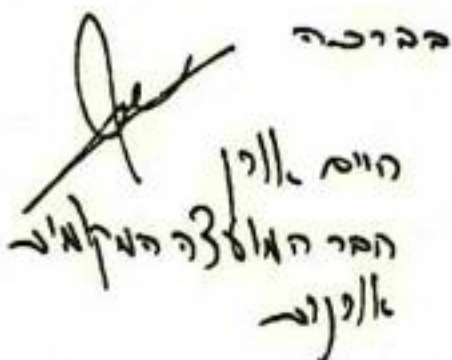 בברכה
חיים אורן
חבר המועצה המקומית
אורנית